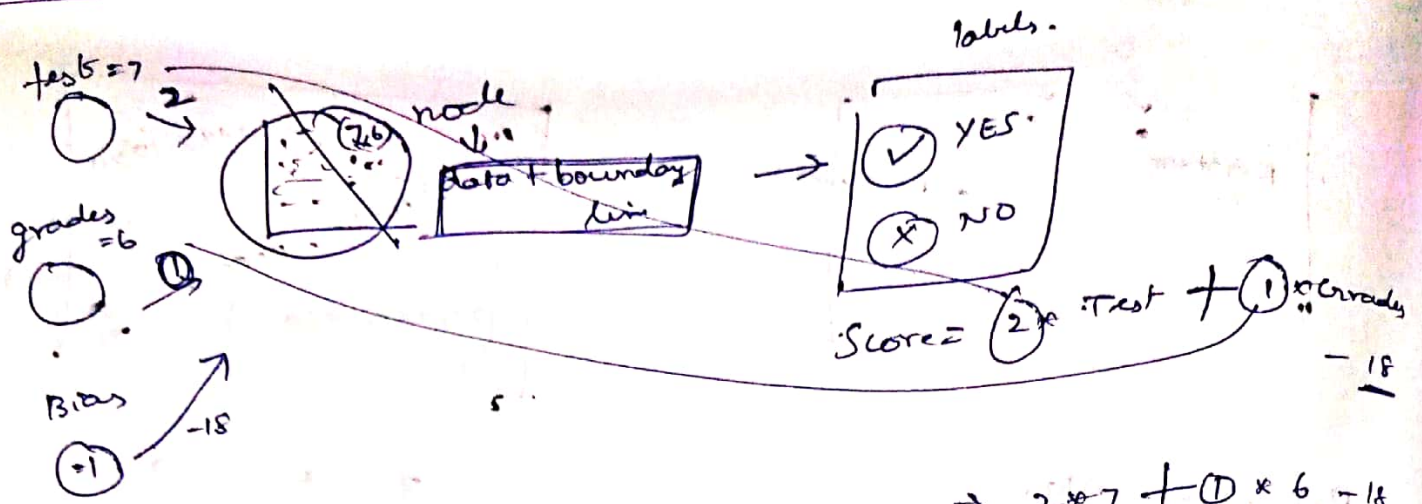 labels.
test = 7
2
node
(7,6)
YES.
data + boundary
line
NO
grades
= 6
1
Score = 2 * Test + 1 * Grades
- 18
Bias
-18
2 * 7 + 1 * 6 - 18